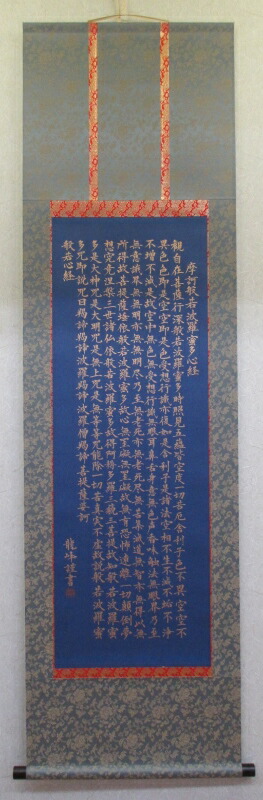 摩訶般若波羅蜜多心経
観自在菩薩行深般若波羅蜜多時照見五蘊皆空度一切苦厄舎利子色不異空空不
異色色即是空空即是色受想行識亦復如是舎利子是諸法空相不生不滅不垢不浄
不増不減是故空中無色無受想行識無眼耳鼻舌身意無色声香味触法無眼界乃至
無意識界無無明亦無無明尽乃至無老死亦無老死尽無苦集滅道無智亦無得以無
所得故菩提薩埵依般若波羅蜜多故心無罣礙無罣礙故無有恐怖遠離一切顛倒夢
想究竟涅槃三世諸仏依般若波羅蜜多故得阿耨多羅三藐三菩提故知般若波羅蜜
多是大神咒是大明咒是無上咒是無等等咒能除一切苦真実不虚故説般若波羅蜜
多咒即説咒曰羯諦羯諦波羅羯諦波羅僧羯諦菩提薩婆訶
般若心経
龍峰謹書